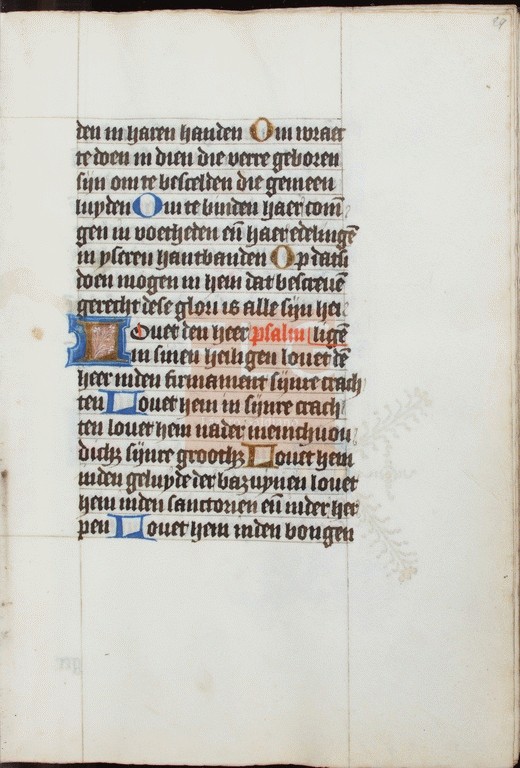 den in haren handen Om wraec
te doen in dien die verre geboren
sijn om te bescelden die gemeen
luyden Om te binden haer com̄
gen in voetheten en̄ haer edelingē
in yseren hantbanden Op dat si
doen mogen in hem dat bescreuē
gerecht dese glori is alle sijn hei
Louet den heer psalm ligē
in sinen heiligen louet dē
heer inden firmament sijnre crach
ten Louet hem in sijnre crach
ten louet hem nader menichuou
dichz sijnre groothz Louet hem
inden geluyde der bazuynen louet
hem inden sanctorien en̄ inder her
pen Louet hem inden bongen